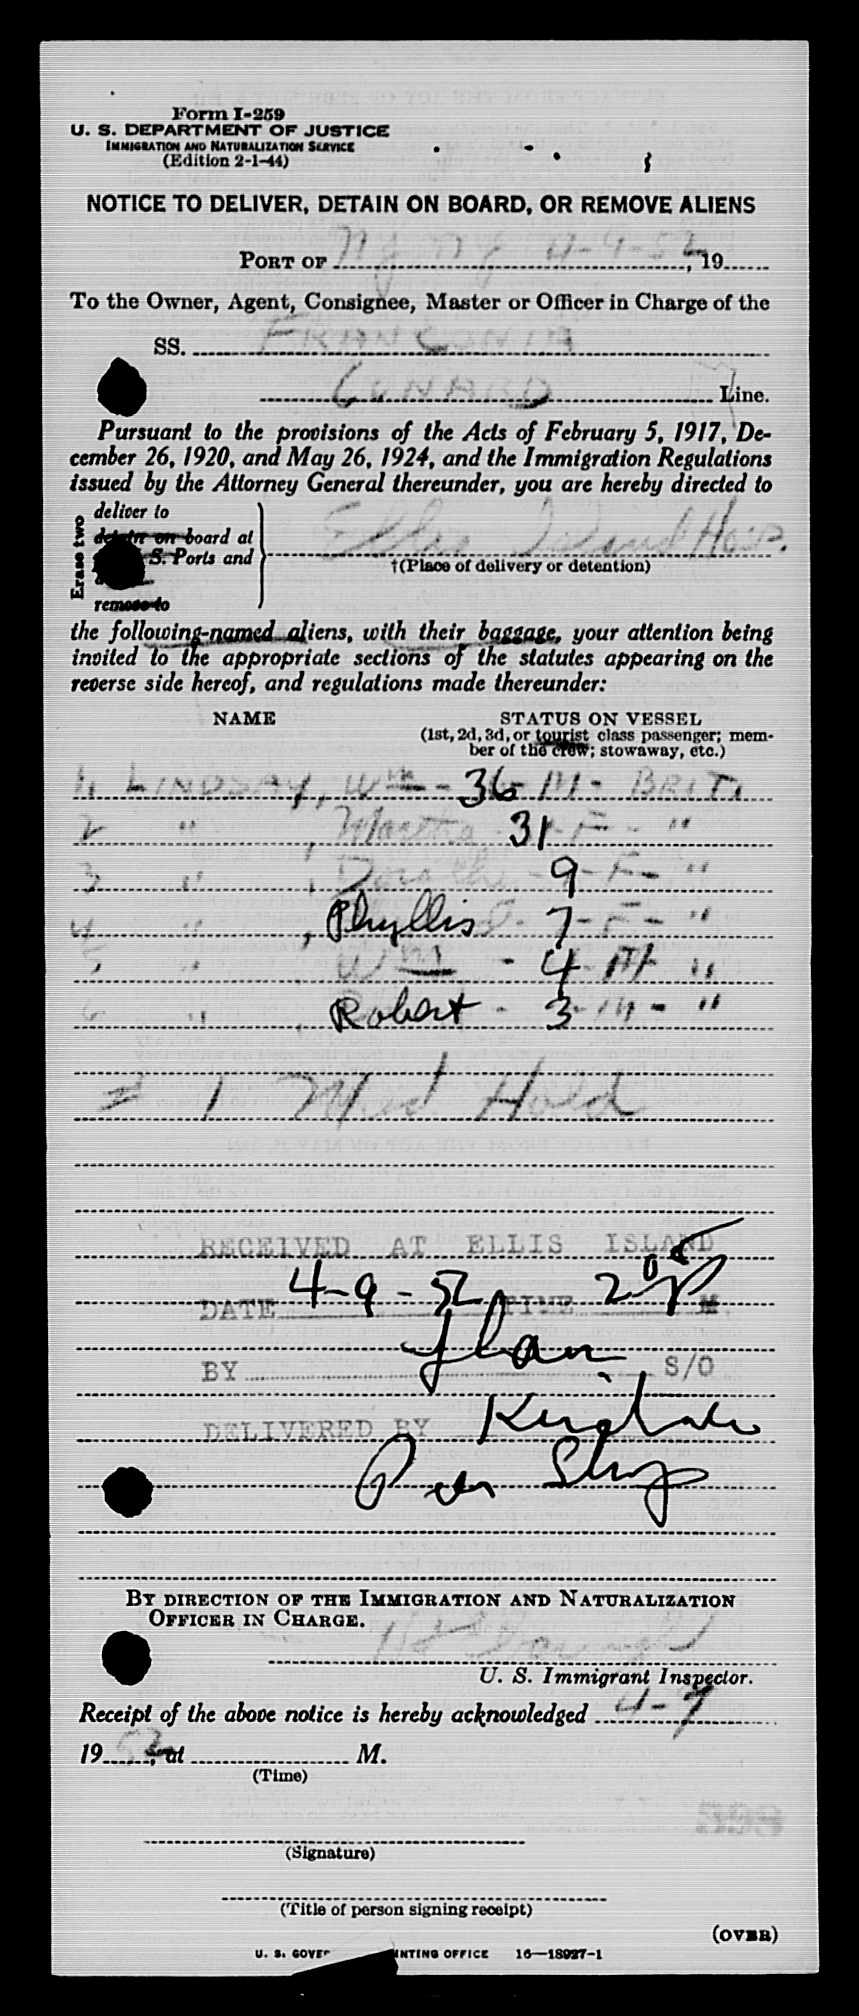 Form I-259
U. S. DEPARTMENT OF JUSTICE
IMMIGRATION AND NATURALIZATION SERVICE
(Edition 2-1-44)
NOTICE TO DELIVER, DETAIN ON BOARD, OR REMOVE ALIENS
PORT OF NY NY 4-9-52, 19
To the Owner, Agent, Consignee, Master or Officer in Charge of the
SS. FRANCONIA
CUNARD Line.
Pursuant to the provisions of the Acts of February 5, 1917, De-
cember 26, 1920, and May 26, 1924, and the Immigration Regulations
issued by the Attorney General thereunder, you are hereby directed to
Erase two
deliver to
detain on board at
S. Ports and
remove to
Ellis Island Hosp.
†(Place of delivery or detention)
the following-named aliens, with their baggage, your attention being
invited to the appropriate sections of the statutes appearing on the
reverse side hereof, and regulations made thereunder:
NAME STATUS ON VESSEL
(1st, 2d, 3d, or tourist class passenger; mem-
ber of the crew; stowaway, etc.)
1. LINDSAY, Wm - 36 - M - BRIT.
2 " , Martha - 31 - F - "
3 " , - 9 - F - "
4 " , Phyllis - 7 - F - "
5 " , Wm - 4 - M "
6 " , Robert - 3 - M - "
# 1 Med Hold
RECEIVED AT ELLIS ISLAND
DATE 4-9-52 TIME 2 05 P M.
BY S/O
DELIVERED BY
BY DIRECTION OF THE IMMIGRATION AND NATURALIZATION
OFFICER IN CHARGE.
U. S. Immigrant Inspector.
Receipt of the above notice is hereby acknowledged 4-9
19 52, at M.
(Time)
(Signature)
(Title of person signing receipt)
(OVER)
U. S. PRINTING OFFICE 16—18927-1